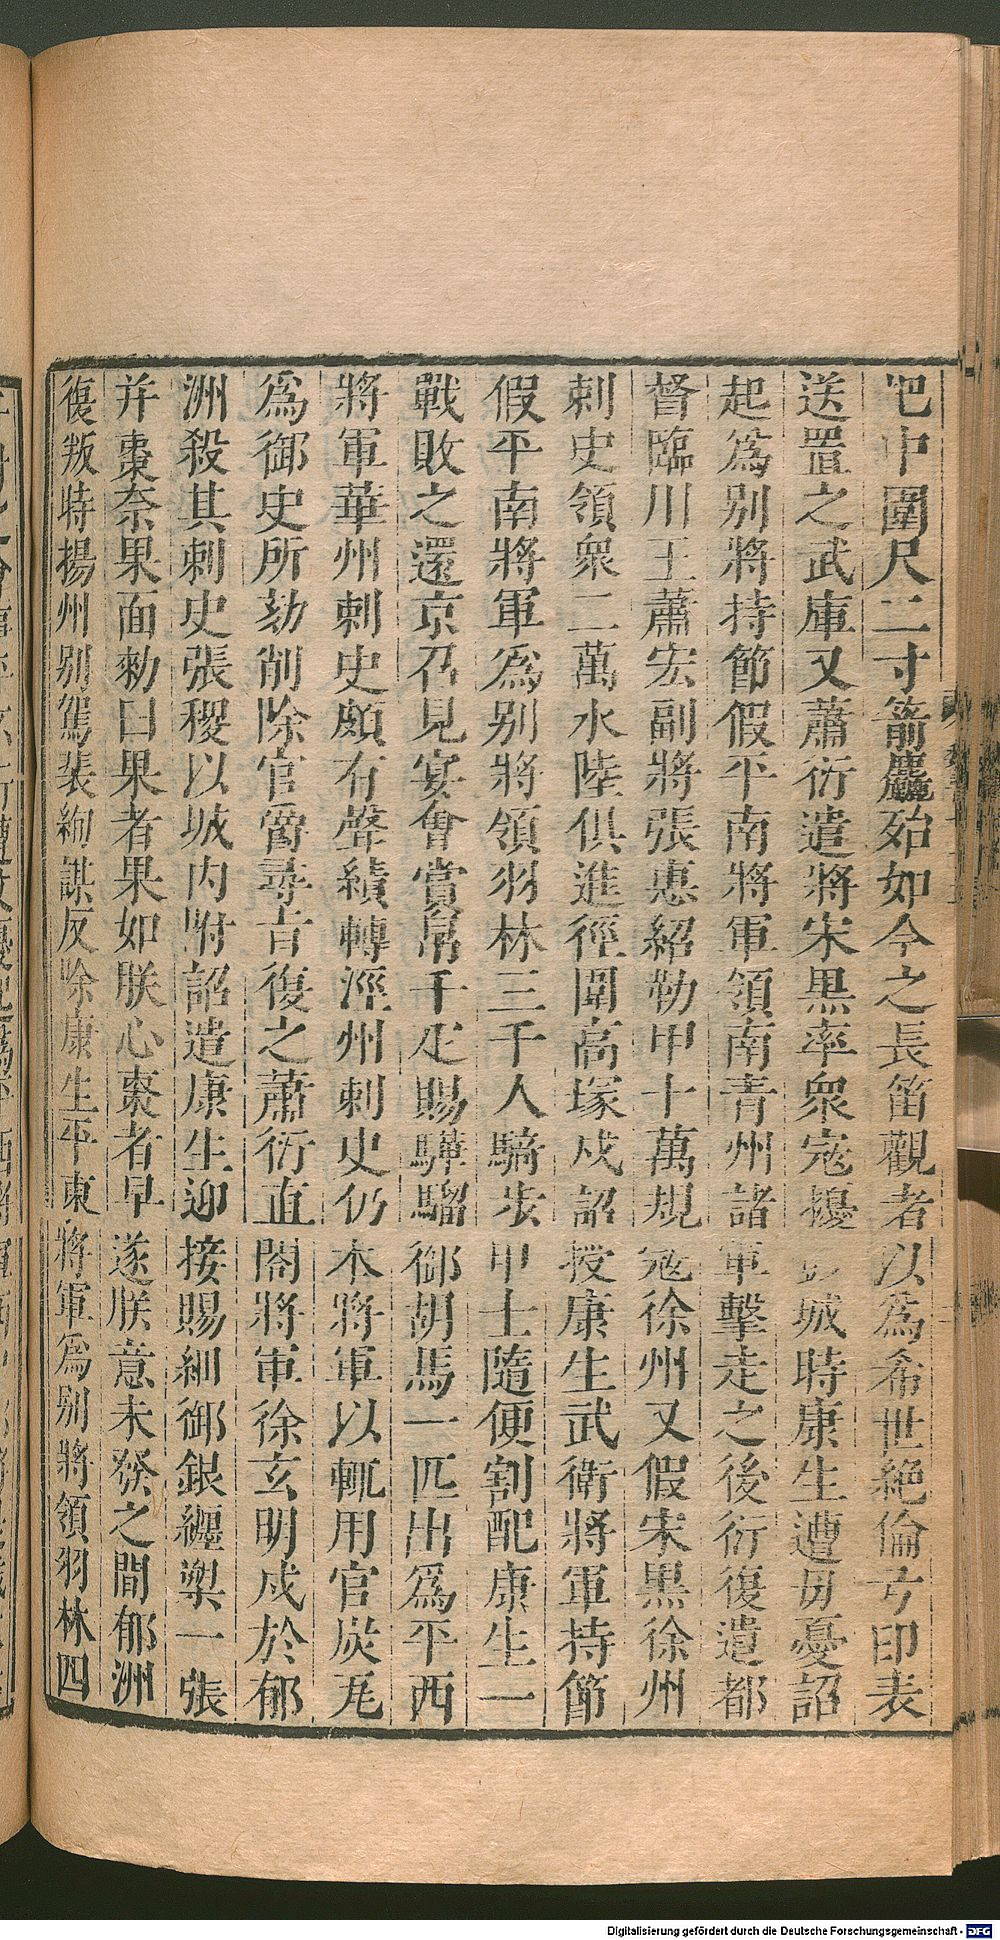 弝中圍尺二寸箭麤殆如今之長笛觀者以爲希世絶倫亐印表
送置之武庫又蕭衍遣將宋黒率衆宼擾彭城時康生遭母憂詔
起爲别將持節假平南將軍領南青州諸軍擊走之後衍復遣都
督臨川王蕭宏副將張惠紹勒甲十萬規宼徐州又假宋黒徐州
刺史領衆二萬水陸俱進徑圍高塚戍詔授康生武衛將軍持節
假平南將軍爲别將領羽林三千人騎步甲士隨便割配康生一
戰敗之還京召見宴會賞帛千疋賜驊騮御胡馬一匹出爲平西
將軍華州刺史頗有聲績轉涇州刺史仍本將軍以輒用官炭瓦
爲御史所劾削除官爵尋旨復之蕭衍直閤將軍徐玄明戍於郁
洲殺其刺史張稷以城内附詔遣康生迎接賜細御銀纏槊一張
并棗奈果面勑曰果者果如朕心棗者早遂朕意未發之間郁洲
復叛時揚州别駕裴絢謀反除康生平東將軍爲别將領羽林四
Digitalisierung gefördert durch die Deutsche Forschungsgemeinschaft - DFG